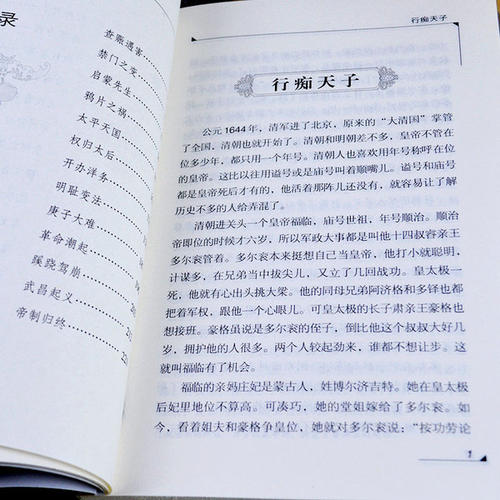 录
查赈遇害
禁门之变
启蒙先生
鸦片之祸
太平天国
权归太后
开办洋务
明耻变法
庚子大难
革命潮起
蹊跷驾崩
武昌起义
帝制归终
行痴天子
行痴天子
公元1644年，清军进了北京，原来的“大清国”掌管
了全国，清朝也就开始了。清朝和明朝差不多，皇帝不管在
位多少年，都只用一个年号。清朝人也喜欢用年号称呼在位
的皇帝。这比以往用谥号或是庙号叫着顺嘴儿。谥号和庙号
都是皇帝死后才有的，他活着那阵儿还没有，就容易让了解
历史不多的人给弄混了。
清朝进关头一个皇帝福临，庙号世祖，年号顺治。顺治
帝即位的时候才六岁，所以军政大事都是叫他十四叔睿亲王
多尔衮管着。多尔衮本来挺想自己当皇帝，他打小就聪明，
计谋多，在兄弟当中拔尖儿，又立了几回战功。皇太极一
死，他就有心出头挑大梁。他的同母兄弟阿济格和多铎也都
把着军权，跟他一个心眼儿。可皇太极的长子肃亲王豪格也
想接班。豪格虽说是多尔衮的侄子，倒比他这个叔叔大好几
岁，拥护他的人很多。两个人较起劲来，谁都不想让步。这
就叫福临有了机会。
福临的亲妈庄妃是蒙古人，姓博尔济吉特。她在皇太极
后妃里地位不算高。可凑巧，她的堂姐嫁给了多尔衮。如
今，看着姐夫和豪格争皇位，她就对多尔衮说：“按功劳论
1